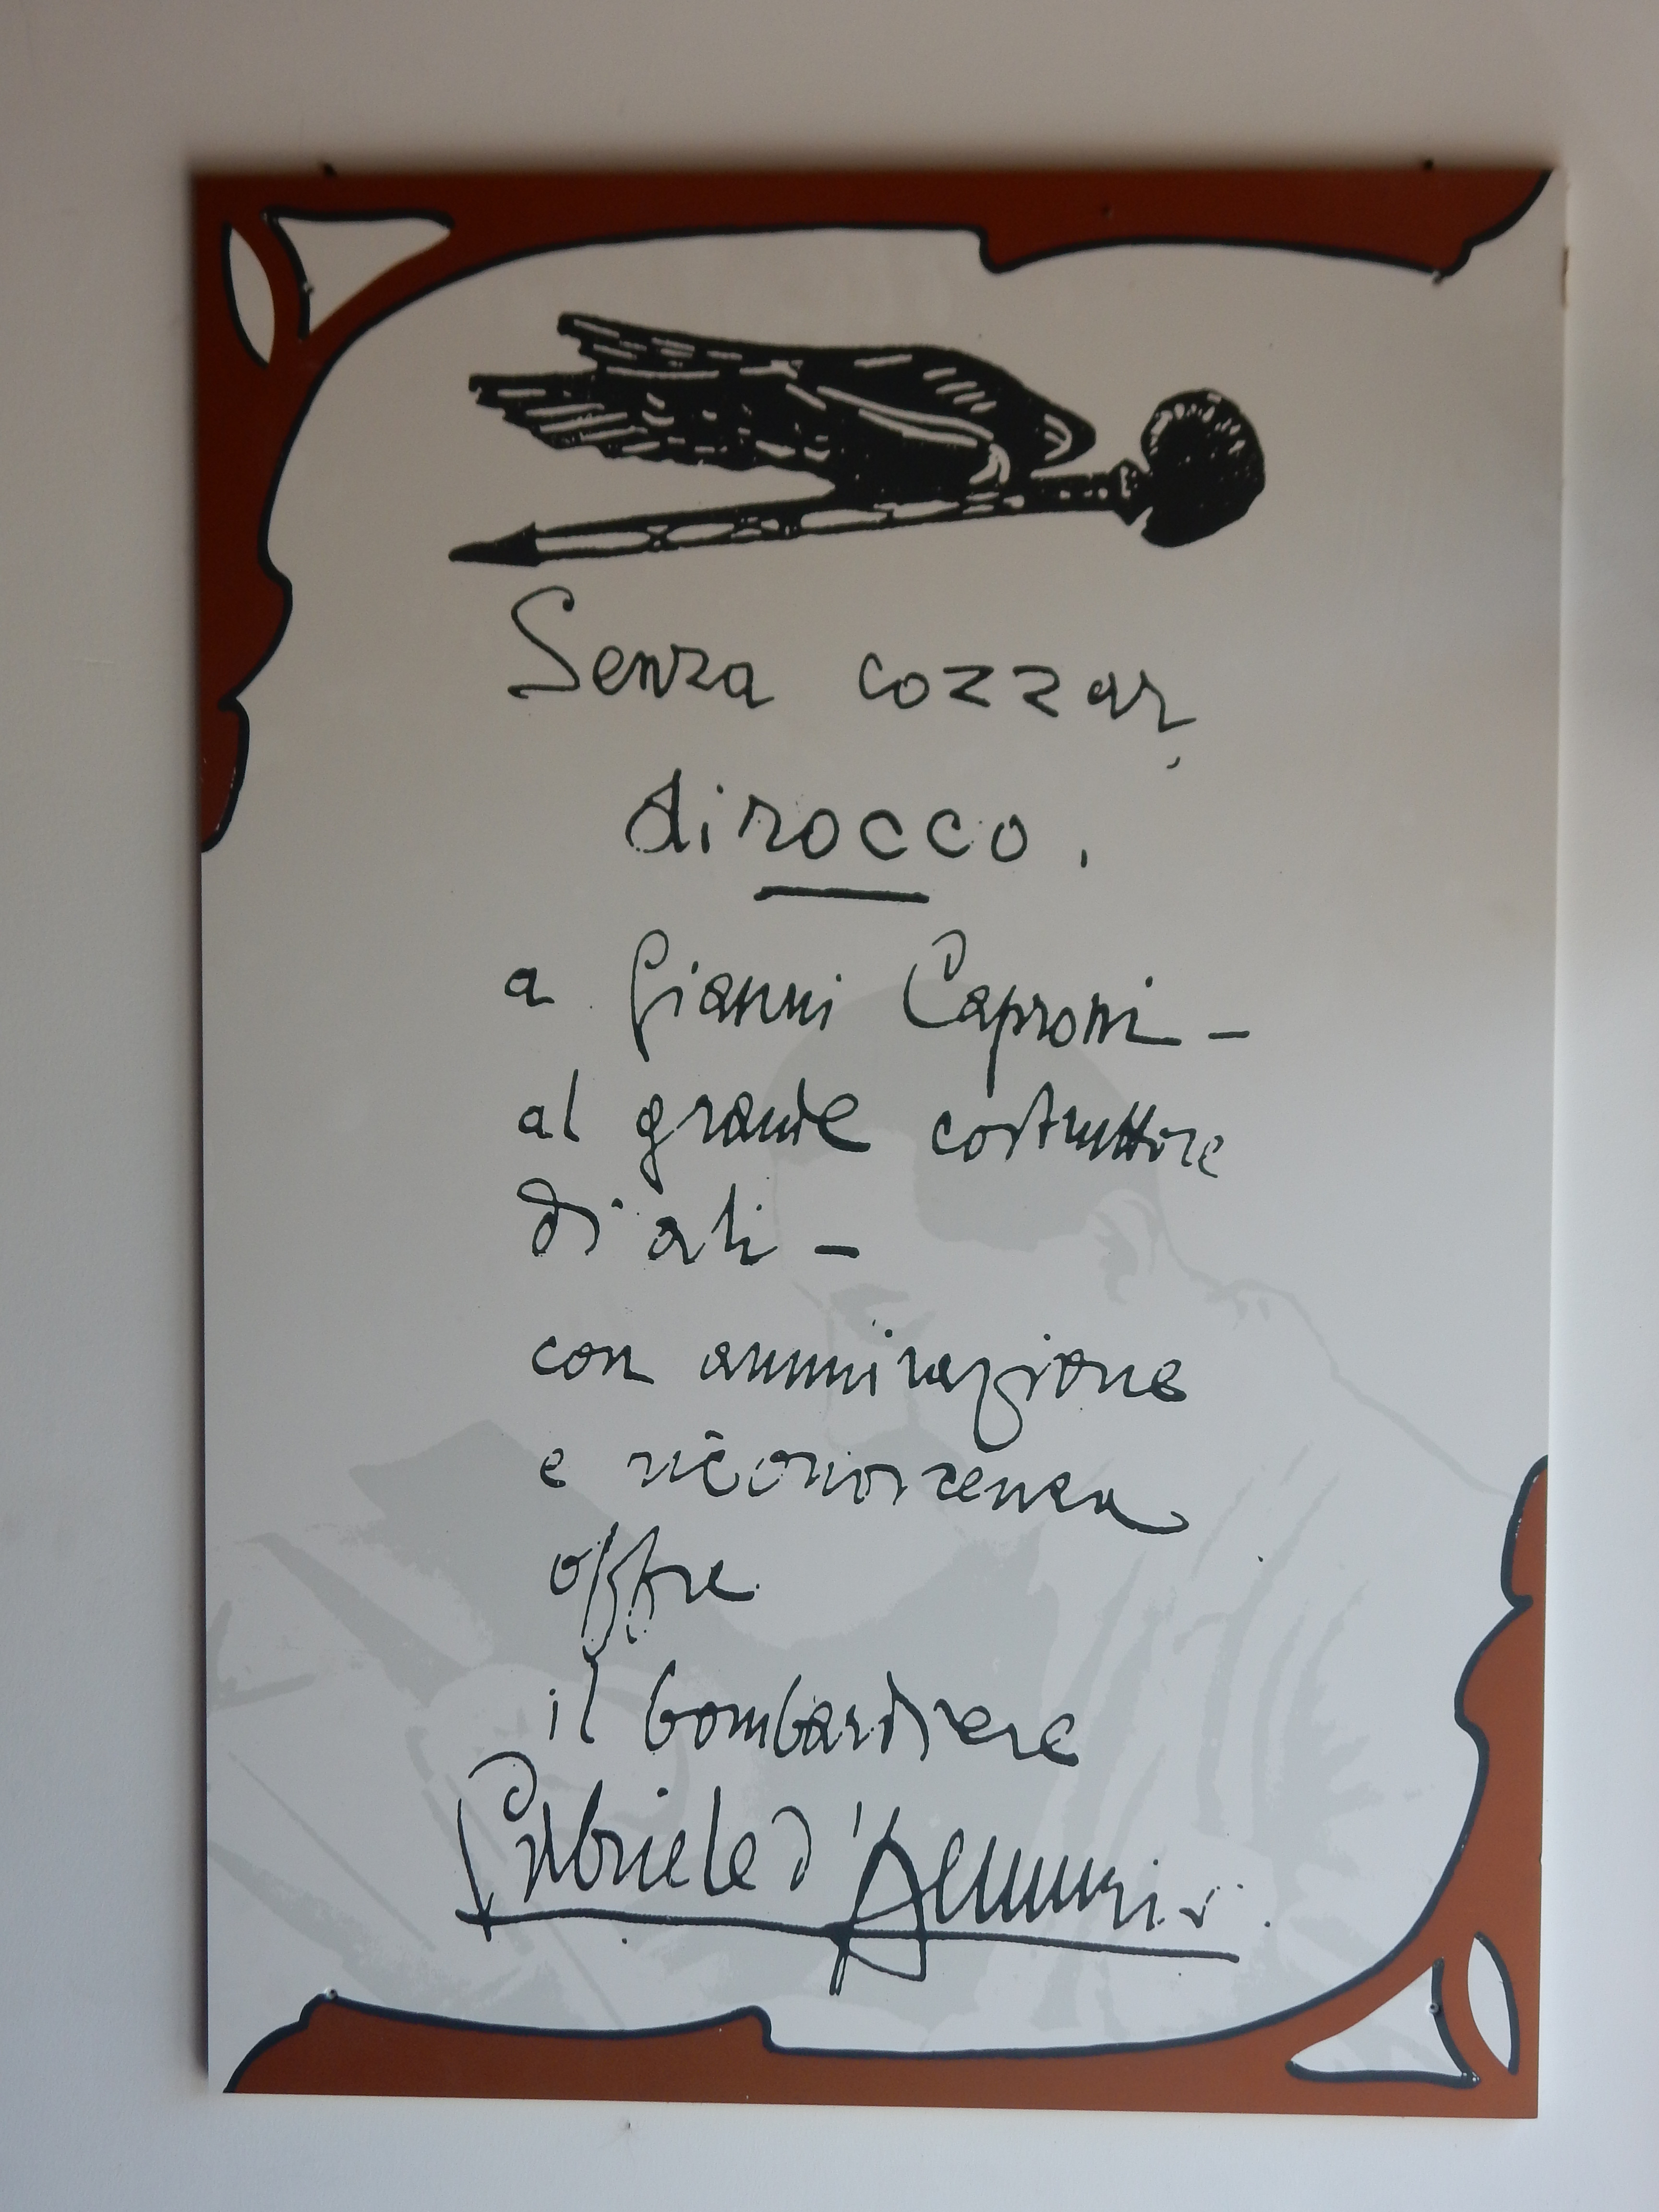 Senza cozzar
dirocco.
a Gianni Caproni -
al grande costruttore
di ali -
con ammirazione
e riconoscenza
offre
il bombardiere
Gabriele d'Annunzio.